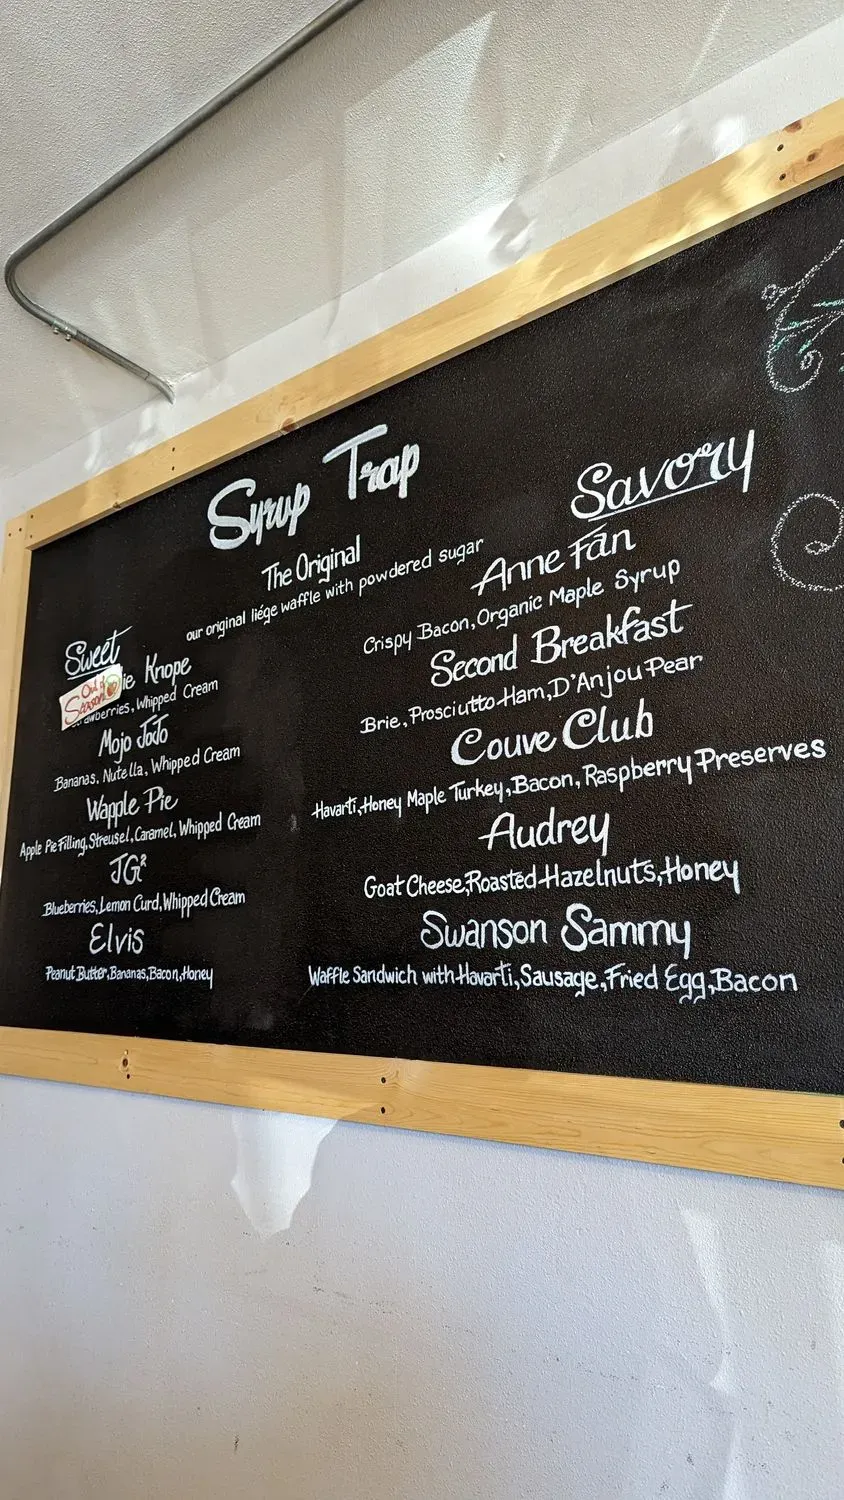 Syrup Trap
The Original
our original liége waffle with powdered sugar
Sweet
Out of
Season
ie Knope
Strawberries, Whipped Cream
Mojo JoJo
Bananas, Nutella, Whipped Cream
Wapple Pie
Apple Pie Filling, Streusel, Caramel, Whipped Cream
JG²
Blueberries, Lemon Curd, Whipped Cream
Elvis
Peanut Butter, Bananas, Bacon, Honey
Savory
Anne Fan
Crispy Bacon, Organic Maple Syrup
Second Breakfast
Brie, Prosciutto Ham, D'Anjou Pear
Couve Club
Havarti, Honey Maple Turkey, Bacon, Raspberry Preserves
Audrey
Goat Cheese, Roasted Hazelnuts, Honey
Swanson Sammy
Waffle Sandwich with Havarti, Sausage, Fried Egg, Bacon